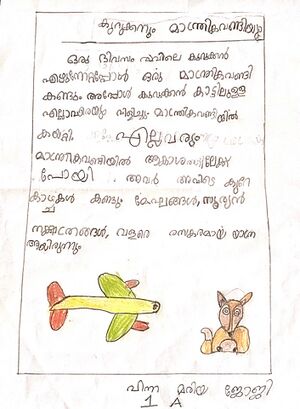 കുറുക്കനും മാന്ത്രികവണ്ടിയും
ഒരു ദിവസം രാവിലെ കുറുക്കൻ
എഴുന്നേറ്റപ്പോൾ ഒരു മാന്ത്രികവണ്ടി
കണ്ടു. അപ്പോൾ കുറുക്കൻ കാട്ടിലുള്ള
എല്ലാവരെയും വിളിച്ചു. മാന്ത്രികവണ്ടിയിൽ
കയറി. എല്ലാവരും
മാന്ത്രികവണ്ടിയിൽ ആകാശത്തിലേക്ക്
പോയി. അവർ അവിടെ കുറേ
കാഴ്ചകൾ കണ്ടു. മേഘങ്ങൾ, സൂര്യൻ
നക്ഷത്രങ്ങൾ, വളരെ രസകരമായ യാത്ര
ആയിരുന്നു
മരിയ ജോജി
1 A